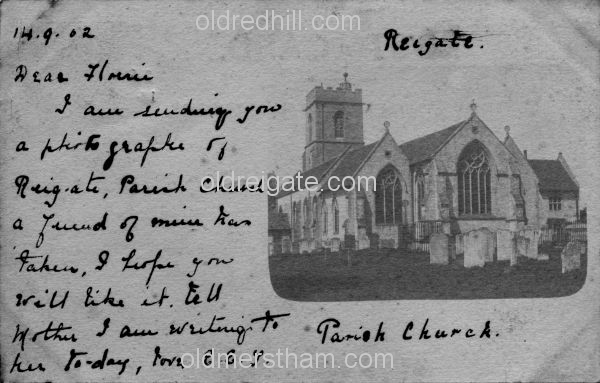 oldredhill.com
14.9.02
Reigate.
Dear Florrie
I am sending you
a photographe of
Reigate, Parish Church
oldreigate.com
a friend of mine has
taken, I hope you
will like it. tell
Mother I am writing to
her to-day, love
Parish Church.
oldmerstham.com